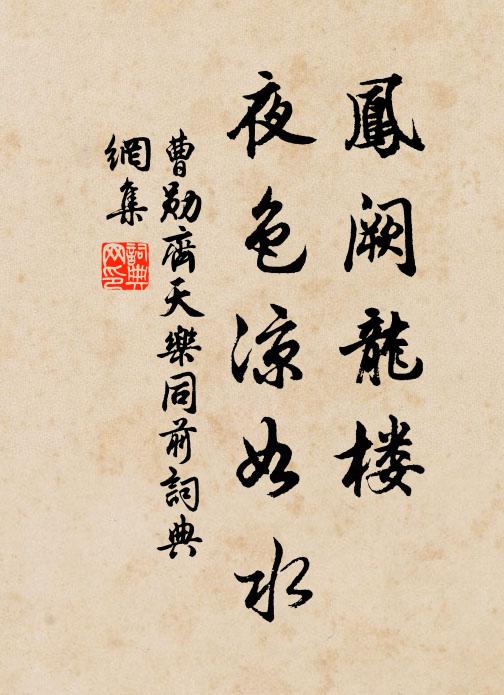 鳳闕龍楼
夜色涼如水
曹勛齊天樂同前詞典
網集
詞典
网印